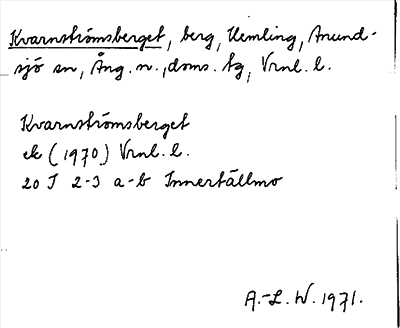 Kvarnströmsberget, berg, Kemling, Anund-
sjö sn, Ång. n., doms. tg, Vrnl. l.
Kvarnströmsberget
ek (1970) Vrnl. l.
20 I 2-3 a-b Innertällmo
A.-L. W. 1971.